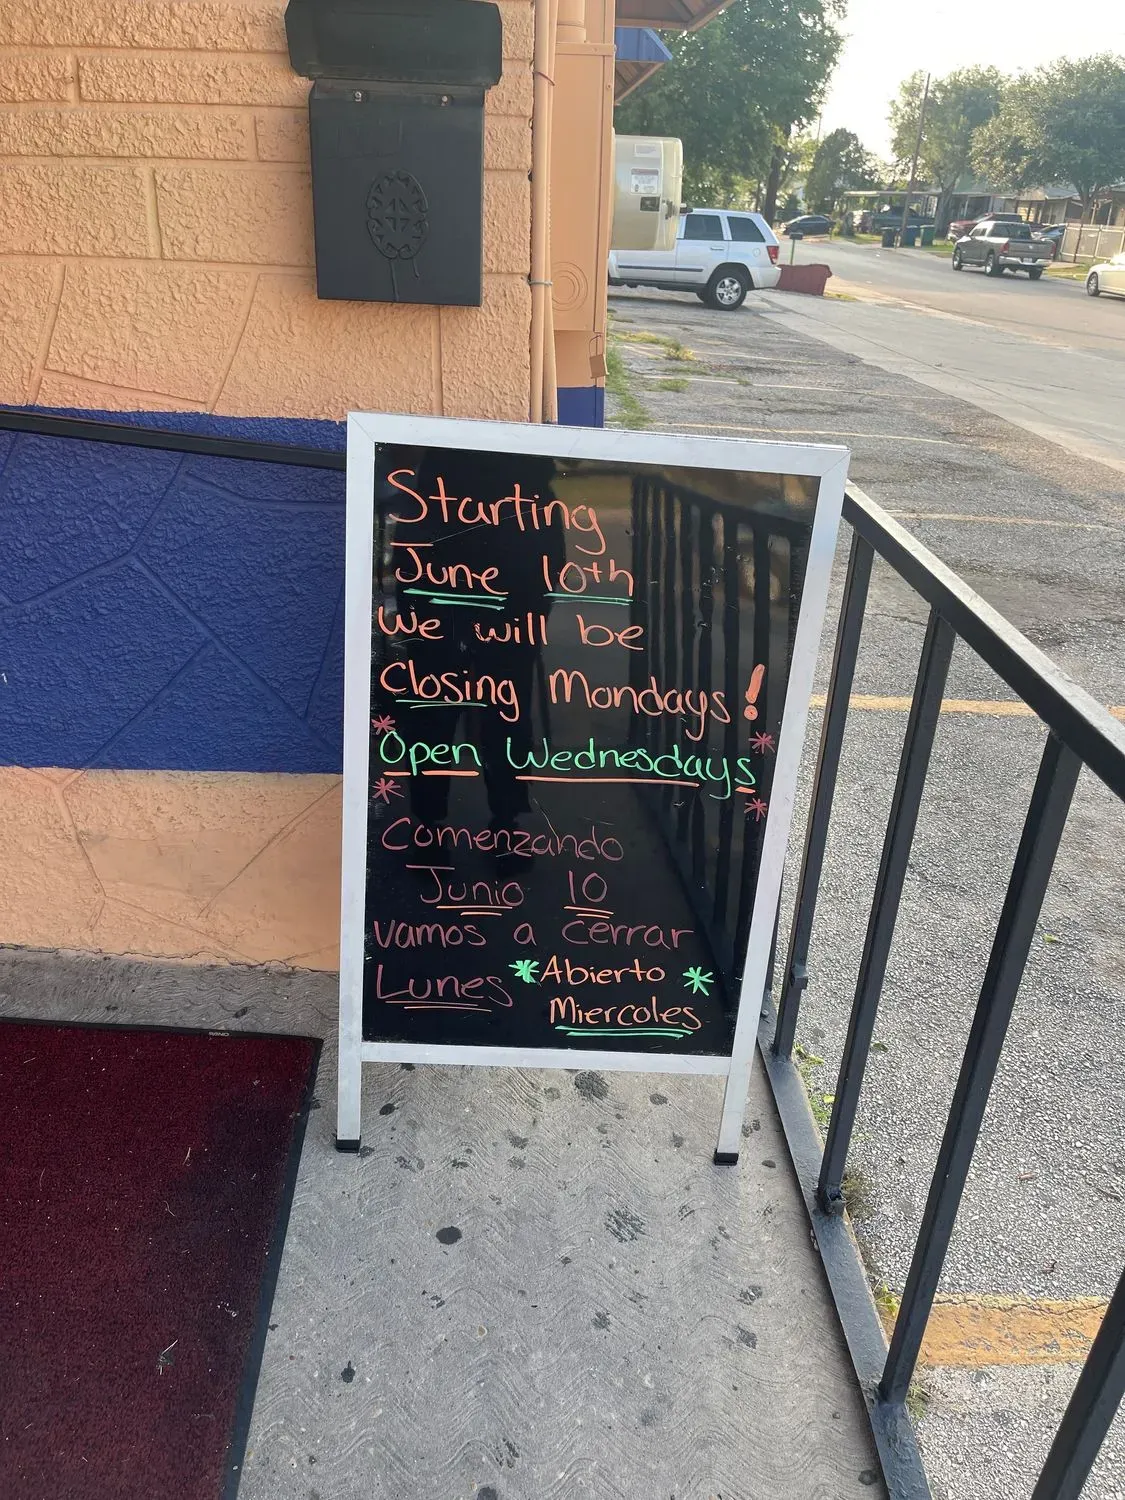 Starting
June 10th
we will be
Closing Mondays!
* Open Wednesdays *
* *
Comenzando
Junio 10
vamos a cerrar
Lunes *Abierto *
Miercoles